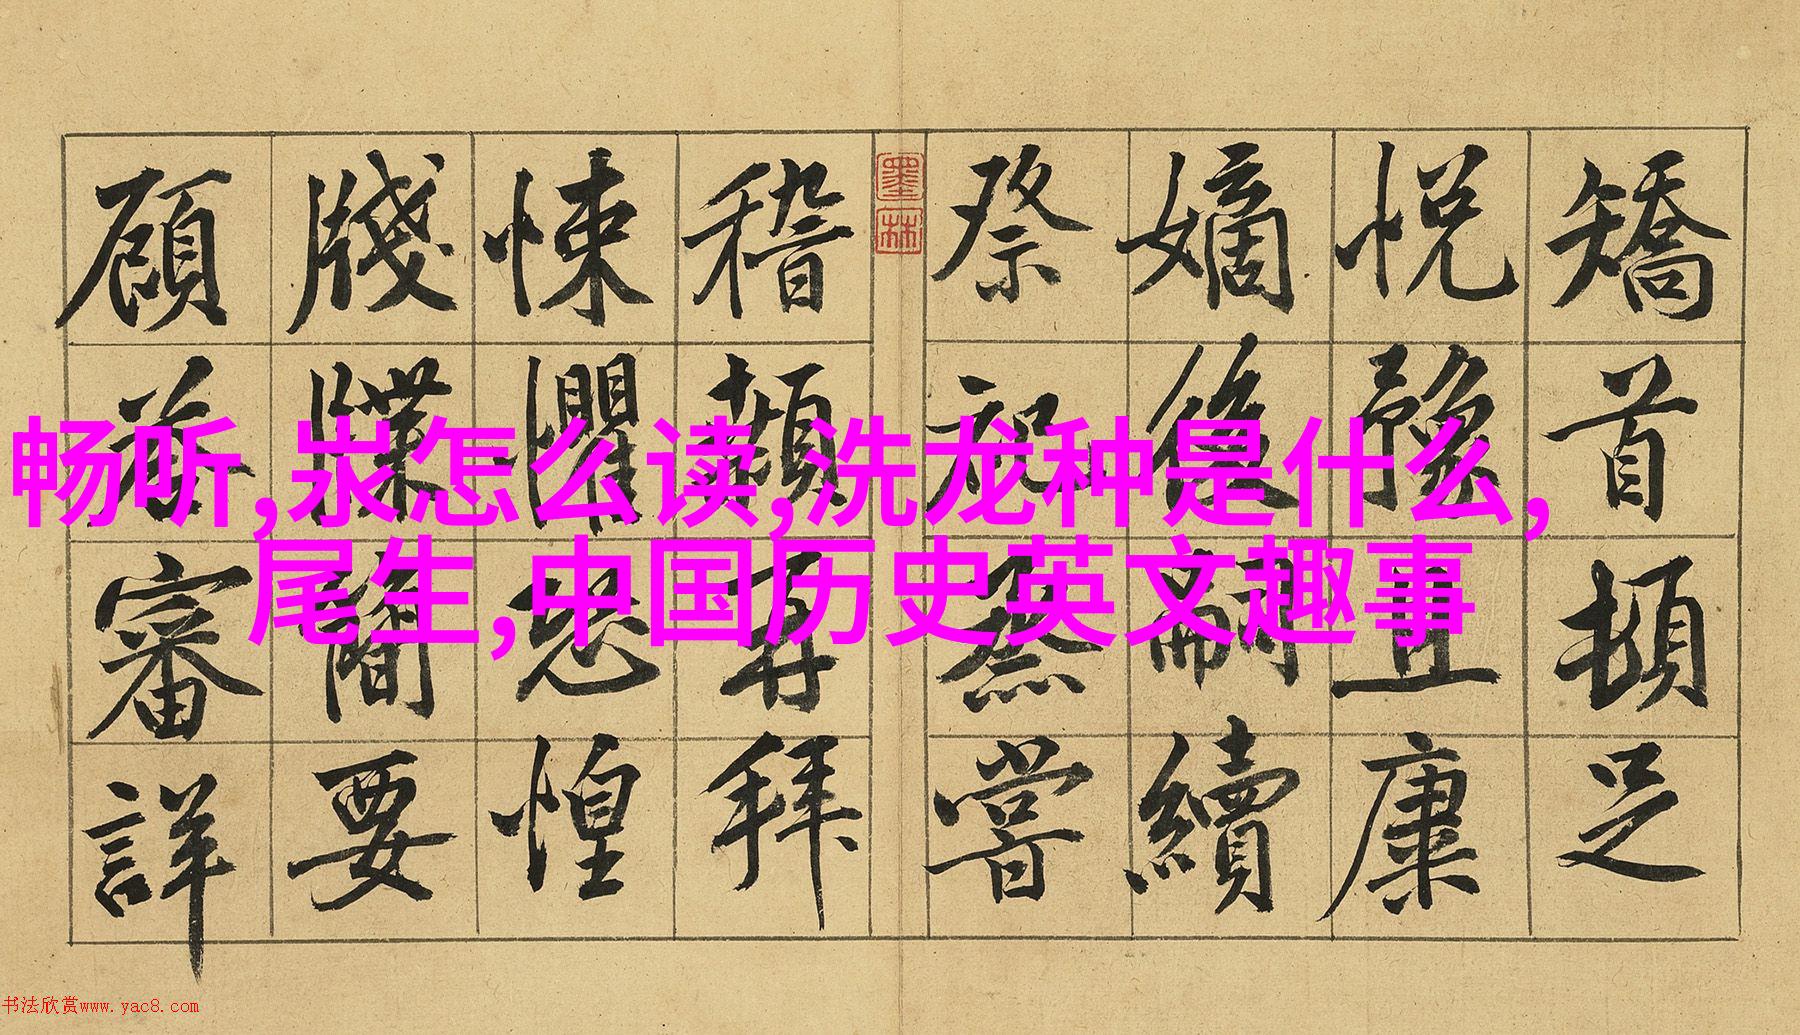 矯首頓足
悅豫且康
嫡後嗣續
祭祀蒸嘗
墨林
稽顙再拜
悚懼恐惶
牋牒簡要
顧荅審詳
畅听,汖怎么读,洗龙种是什么,
尾生,中国历史英文趣事
书法欣赏www.yac8.com